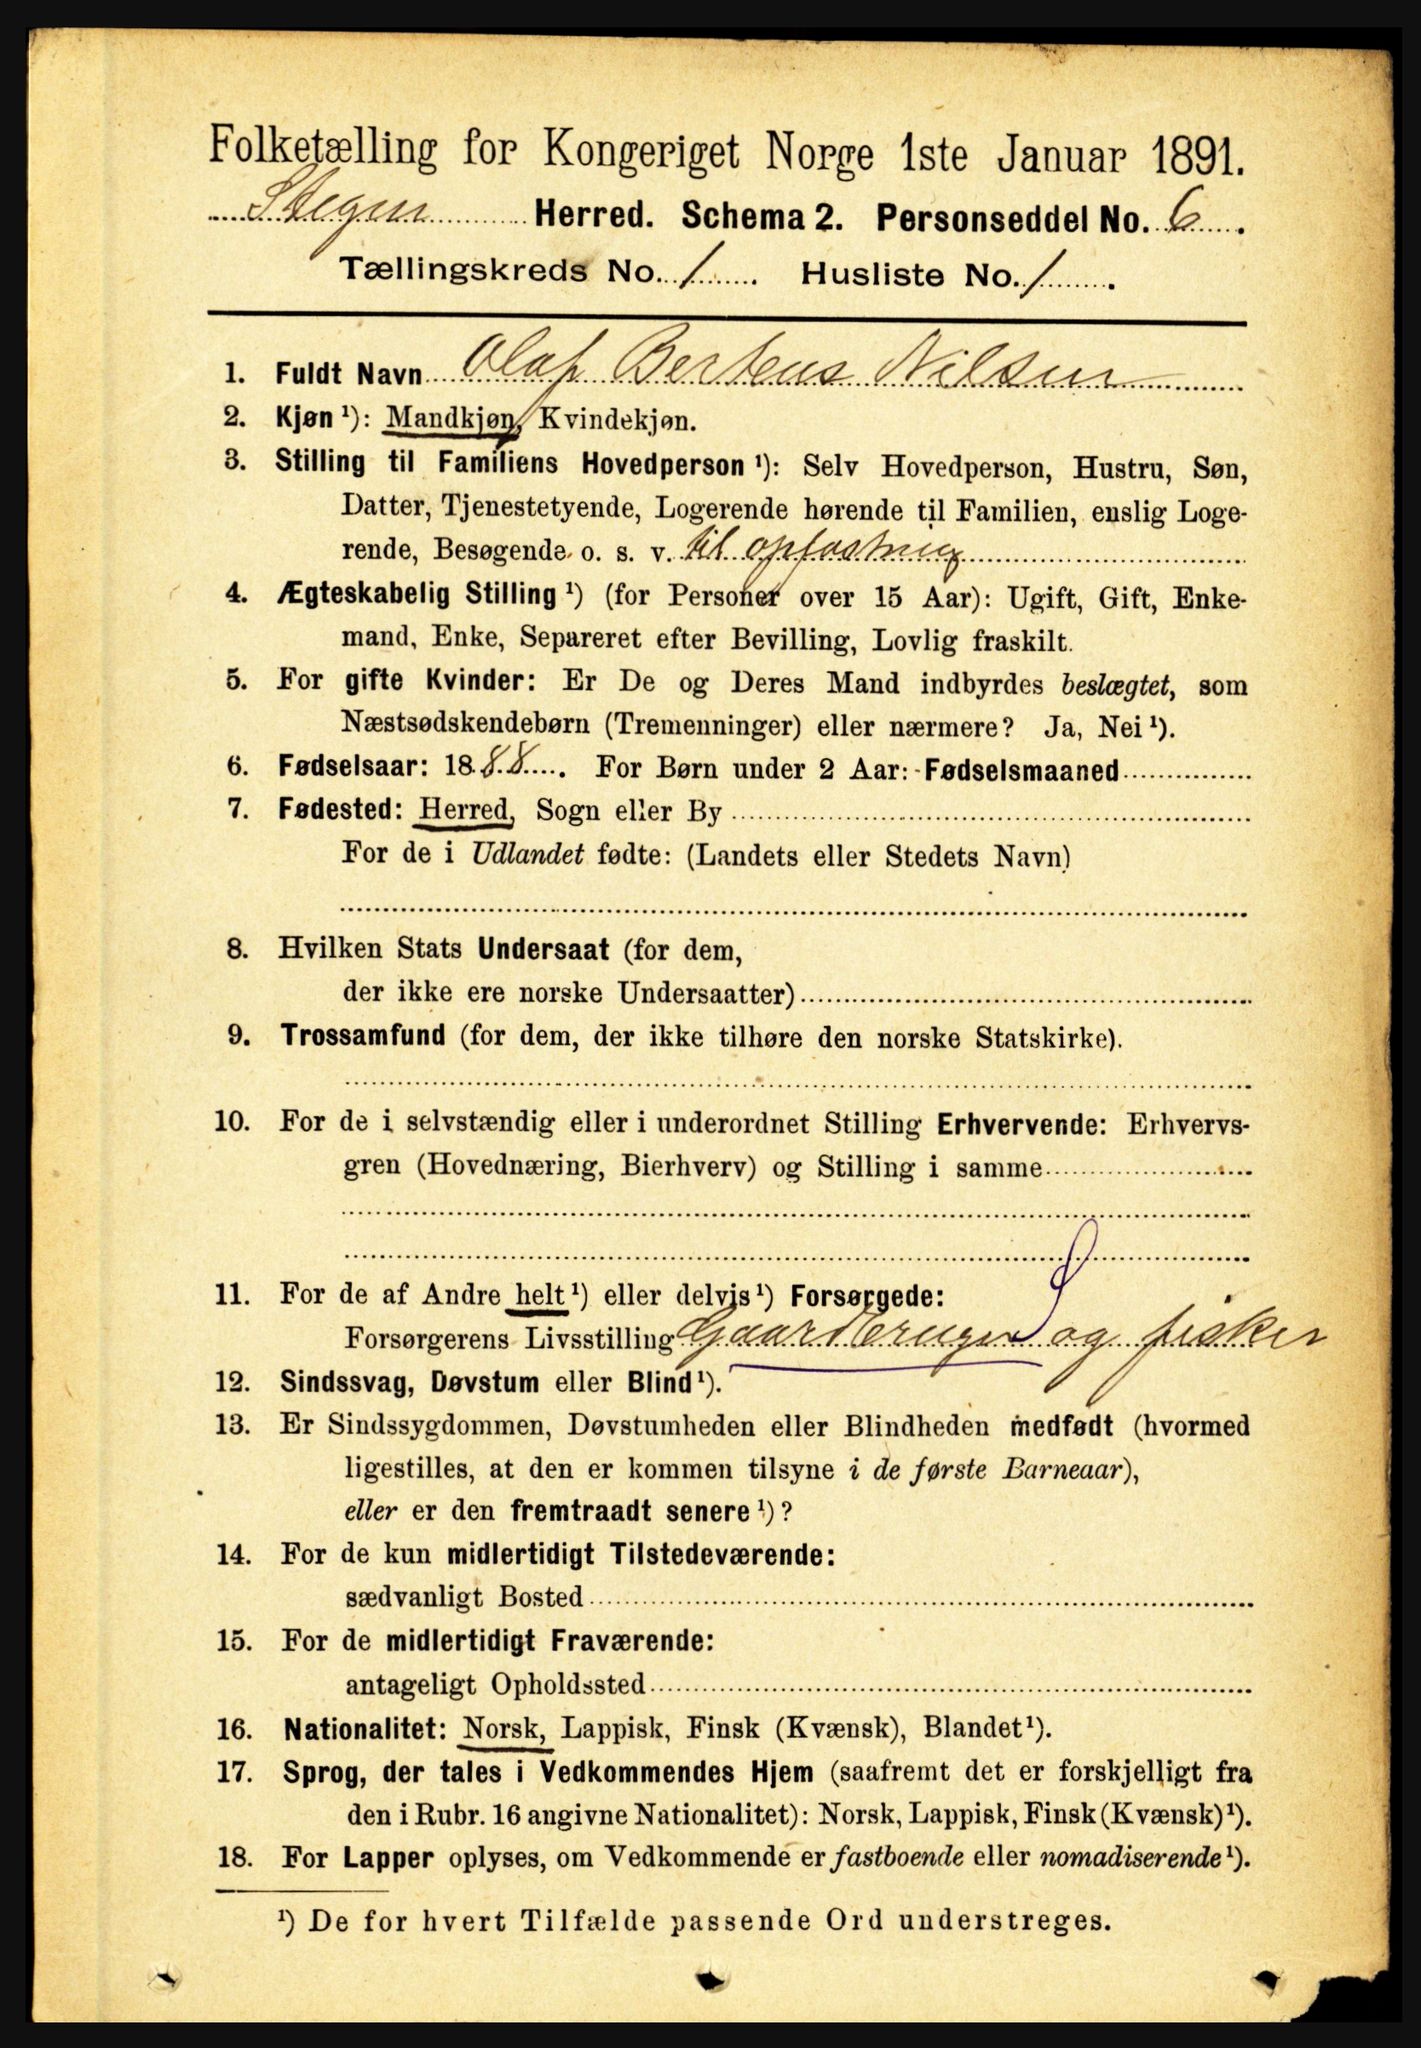 Folketælling for Kongeriget Norge 1ste Januar 1891.
Stegen Herred. Schema 2. Personseddel No. 6.
Tællingskreds No. 1. Husliste No. 1.
1. Fuldt Navn Olaf Berteus Nilsen
2. Kjøn ¹): Mandkjøn, Kvindekjøn.
3. Stilling til Familiens Hovedperson ¹): Selv Hovedperson, Hustru, Søn,
Datter, Tjenestetyende, Logerende hørende til Familien, enslig Loge-
rende, Besøgende o. s. v. til opfostning
4. Ægteskabelig Stilling ¹) (for Personer over 15 Aar): Ugift, Gift, Enke-
mand, Enke, Separeret efter Bevilling, Lovlig fraskilt.
5. For gifte Kvinder: Er De og Deres Mand indbyrdes beslægtet, som
Næstsødskendebørn (Tremenninger) eller nærmere? Ja, Nei ¹).
6. Fødselsaar: 1888. For Børn under 2 Aar: Fødselsmaaned
7. Fødested: Herred, Sogn eller By
For de i Udlandet fødte: (Landets eller Stedets Navn)
8. Hvilken Stats Undersaat (for dem,
der ikke ere norske Undersaatter)
9. Trossamfund (for dem, der ikke tilhøre den norske Statskirke).
10. For de i selvstændig eller i underordnet Stilling Erhvervende: Erhvervs-
gren (Hovednæring, Bierhverv) og Stilling i samme
11. For de af Andre helt ¹) eller delvis ¹) Forsørgede:
Forsørgerens Livsstilling Gaardbruger og fisker
12. Sindssvag, Døvstum eller Blind ¹).
13. Er Sindssygdommen, Døvstumheden eller Blindheden medfødt (hvormed
ligestilles, at den er kommen tilsyne i de første Barneaar),
eller er den fremtraadt senere ¹)?
14. For de kun midlertidigt Tilstedeværende:
sædvanligt Bosted
15. For de midlertidigt Fraværende:
antageligt Opholdssted
16. Nationalitet: Norsk, Lappisk, Finsk (Kvænsk), Blandet ¹).
17. Sprog, der tales i Vedkommendes Hjem (saafremt det er forskjelligt fra
den i Rubr. 16 angivne Nationalitet): Norsk, Lappisk, Finsk (Kvænsk) ¹).
18. For Lapper oplyses, om Vedkommende er fastboende eller nomadiserende ¹).
¹) De for hvert Tilfælde passende Ord understreges.